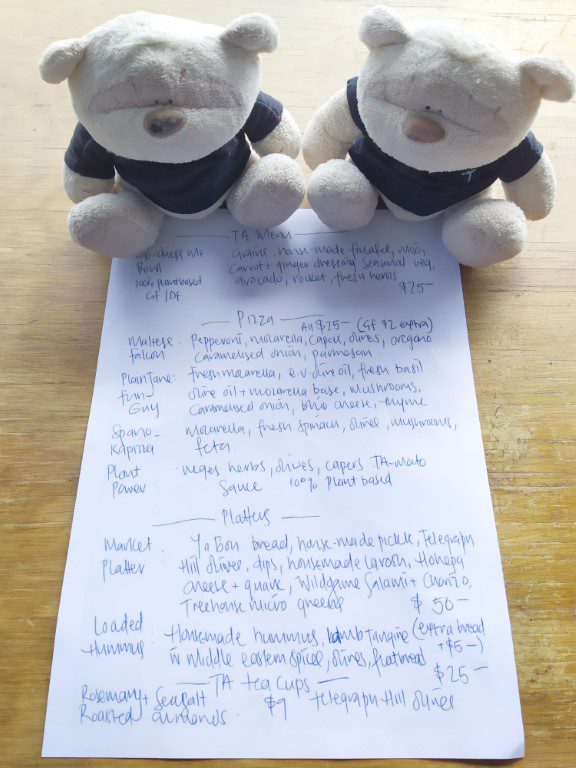 TA Menu
Goodness Me Grains, house-made falafel, miso,
Bowl Carrot + ginger dressing seasonal veg,
100% plant based avocado, rocket, fresh herbs
GF / DF $25-
Pizza All $25- (GF $2 extra)
Maltese: Pepperoni, mozarella, capers, olives, oregano
Falcon Caramelised onion, parmesan
Plain Jane: Fresh mozarella, e.v. olive oil, fresh basil
Fun olive oil + mozarella base, mushrooms,
Guy Caramelised onion, blue cheese, thyme
Spano- mozarella, fresh spinach, olives, mushrooms,
Kapizza feta.
Plant veges herbs, olives, capers TA-mato
Power Sauce 100% plant based
Platters
Market: Ya Bon bread, house-made pickle, Telegraph
Platter Hill olives, dips, housemade lavosh, Hohepa
cheese + quark, Wildgame Salami + Chorizo,
Treehouse micro greens $50-
Loaded: Homemade hummus, lamb (extra bread
Hummus in middle eastern spices, olives, flatbread + $5-)
$25-
TA tea cups
Rosemary + Seasalt $9 Telegraph Hill olives
Roasted almonds.